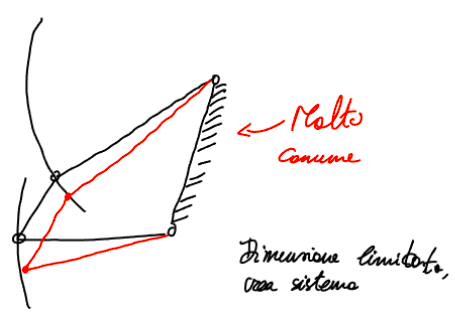 Molto
comune
Dimensione limitata,
crea sistema